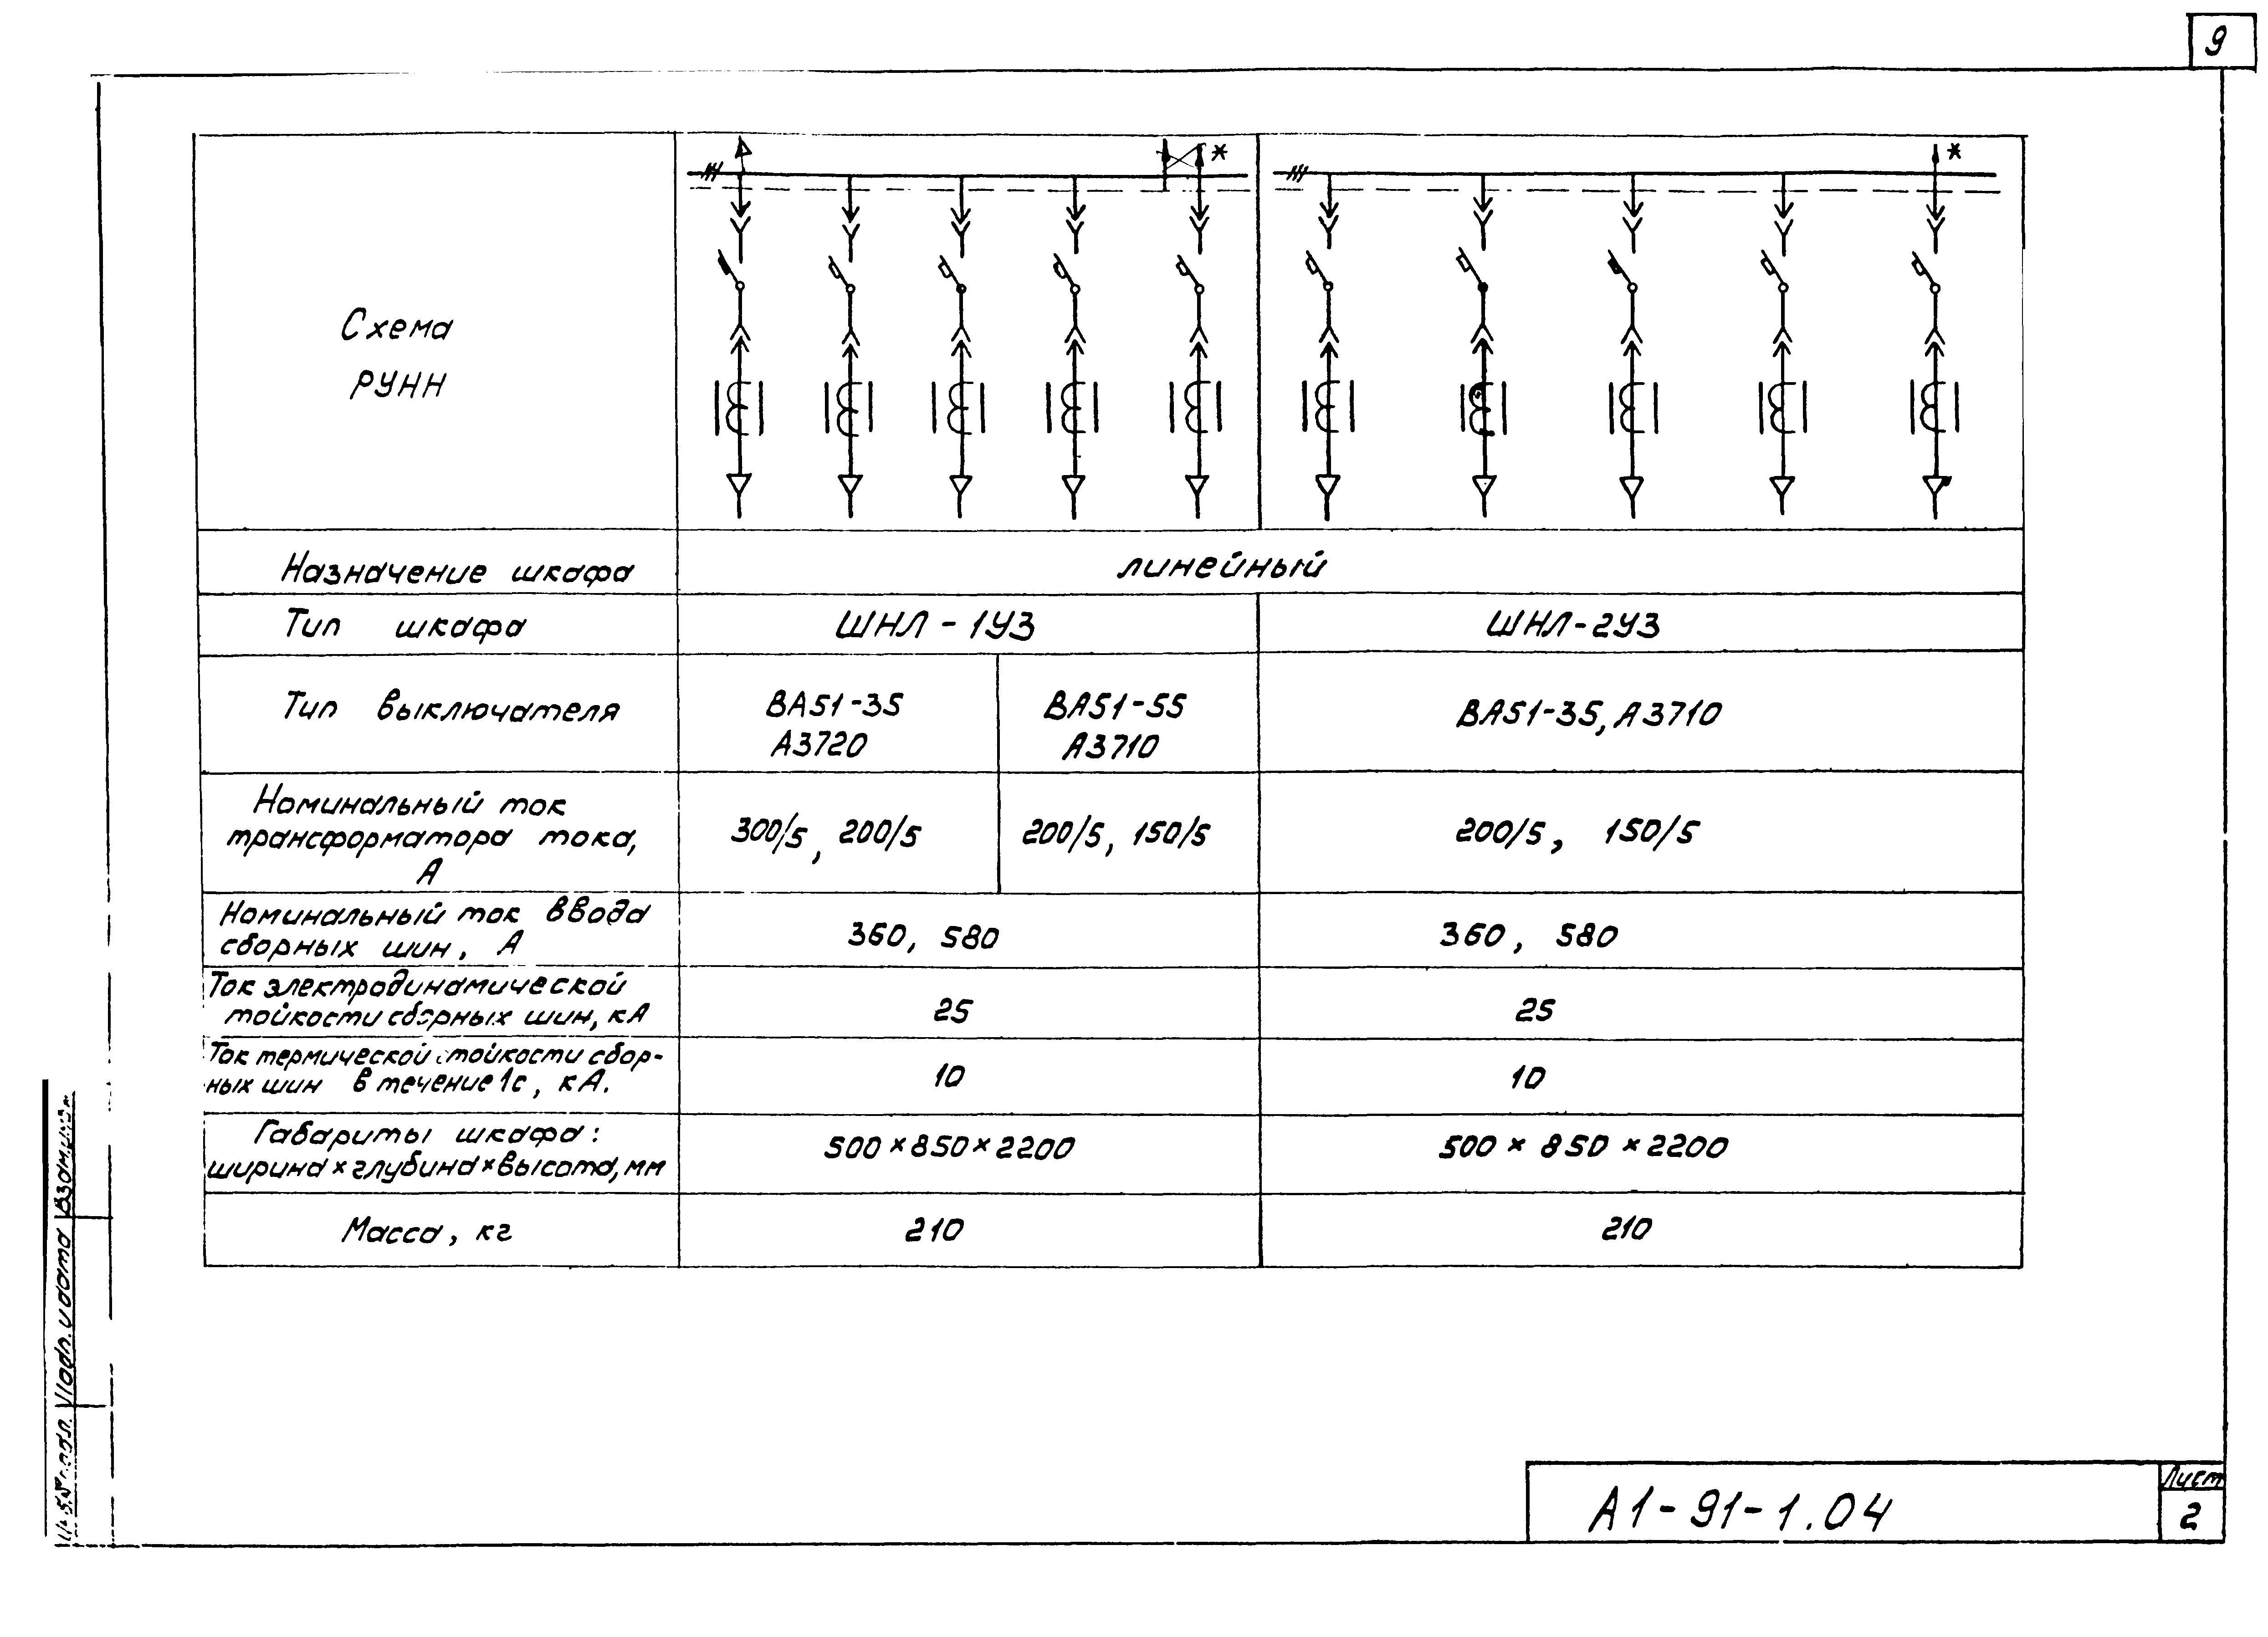 9
*
*
Схема
РУНН
Назначение шкафа
линейный
Тип шкафа
ШНЛ-1У3
ШНЛ-2У3
Тип выключателя
ВА51-35
А3720
ВА51-55
А3710
ВА51-35, А3710
Номинальный ток
трансформатора тока,
А
300/5, 200/5
200/5, 150/5
200/5, 150/5
Номинальный ток ввода
сборных шин, А
360, 580
360, 580
Ток электродинамической
тойкости сборных шин, кА
25
25
Ток термической стойкости сбор-
ных шин в течение 1с, кА.
10
10
Габариты шкафа:
ширина×глубина×высота, мм
500×850×2200
500×850×2200
Масса, кг
210
210
Взам.инв
Подп. и дата
подл.
А1-91-1.04
Лист
2